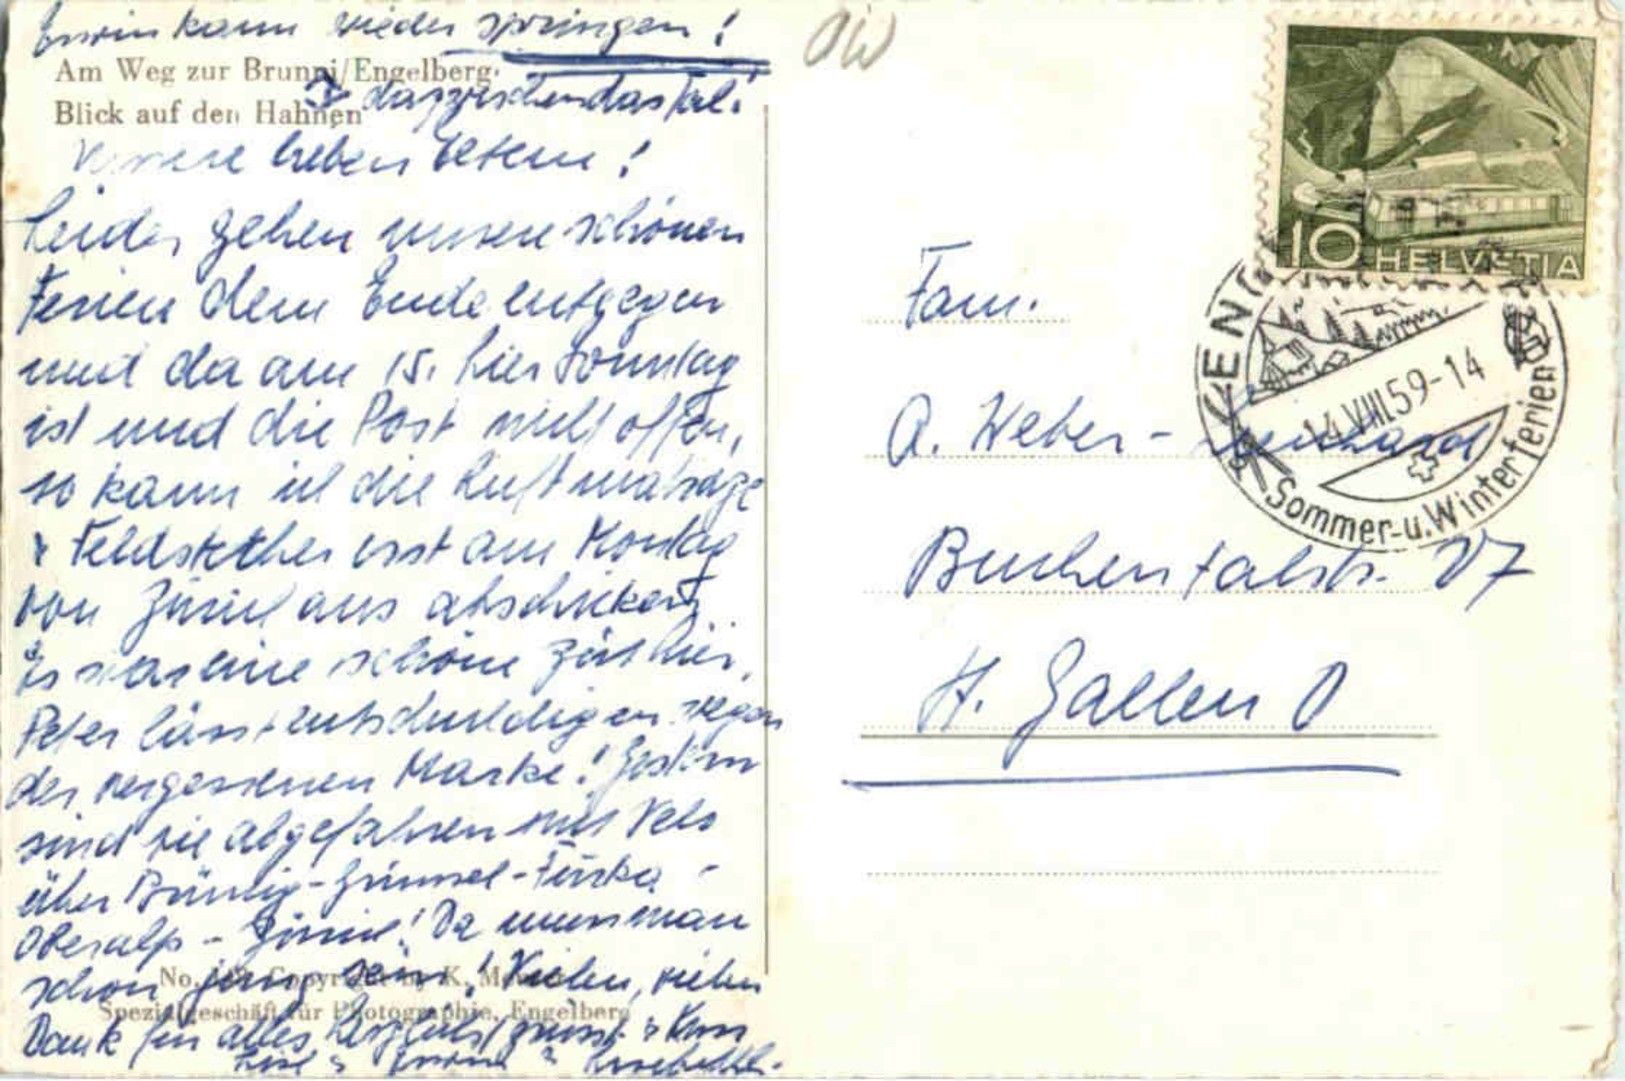 Erwin kann wieder springen!
Am Weg zur Brunni/Engelberg.
Blick auf den Hahnen
dazwischen das Tal!
lieben Eltern!
Leider gehen unsere schönen
Ferien dem Ende entgegen
und da am 15. hier Sonntag
ist und die Post nicht offen,
so kann ich die Luftmatraze
& Feldstecher erst am Montag
von Zürich aus abschicken.
Es war eine schöne Zeit hier.
Peter lässt entschuldigen wegen
der vergessenen Marke! Gestern
sind sie abgefahren mit Velo
über Brünig-Grimsel-Furka-
Oberalp-Zürich! Da muss man
schon jung sein! Vielen, vielen
No. Copyright K.
Spezialgeschäft für Photographie, Engelberg
Dank für alles, herzlichst grüsst
OW
10 HELVETIA
14.VIII.59-14
Sommer-u.Winterferien
Fam.
A. Weber-
Buchentalstr. 27
St. Gallen O